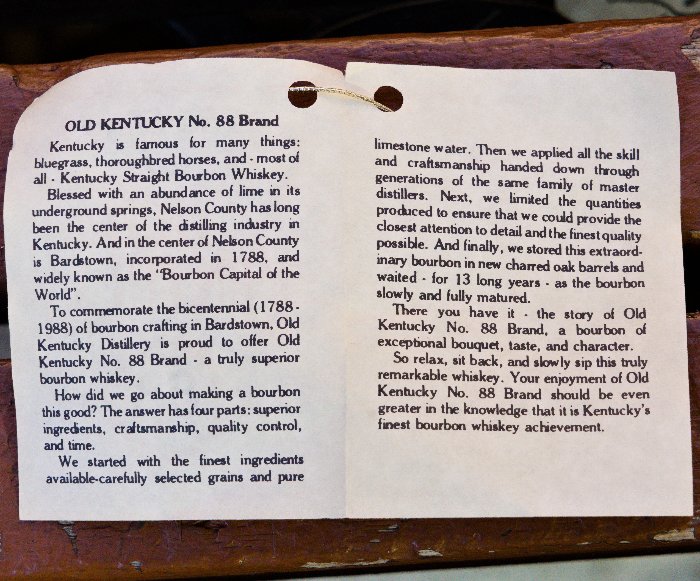 OLD KENTUCKY No. 88 Brand
Kentucky is famous for many things:
bluegrass, thoroughbred horses, and - most of
all - Kentucky Straight Bourbon Whiskey.
Blessed with an abundance of lime in its
underground springs, Nelson County has long
been the center of the distilling industry in
Kentucky. And in the center of Nelson County
is Bardstown, incorporated in 1788, and
widely known as the "Bourbon Capital of the
World".
To commemorate the bicentennial (1788-
1988) of bourbon crafting in Bardstown, Old
Kentucky Distillery is proud to offer Old
Kentucky No. 88 Brand - a truly superior
bourbon whiskey.
How did we go about making a bourbon
this good? The answer has four parts: superior
ingredients, craftsmanship, quality control,
and time.
We started with the finest ingredients
available-carefully selected grains and pure
limestone water. Then we applied all the skill
and craftsmanship handed down through
generations of the same family of master
distillers. Next, we limited the quantities
produced to ensure that we could provide the
closest attention to detail and the finest quality
possible. And finally, we stored this extraord-
inary bourbon in new charred oak barrels and
waited - for 13 long years - as the bourbon
slowly and fully matured.
There you have it - the story of Old
Kentucky No. 88 Brand, a bourbon of
exceptional bouquet, taste, and character.
So relax, sit back, and slowly sip this truly
remarkable whiskey. Your enjoyment of Old
Kentucky No. 88 Brand should be even
greater in the knowledge that it is Kentucky's
finest bourbon whiskey achievement.